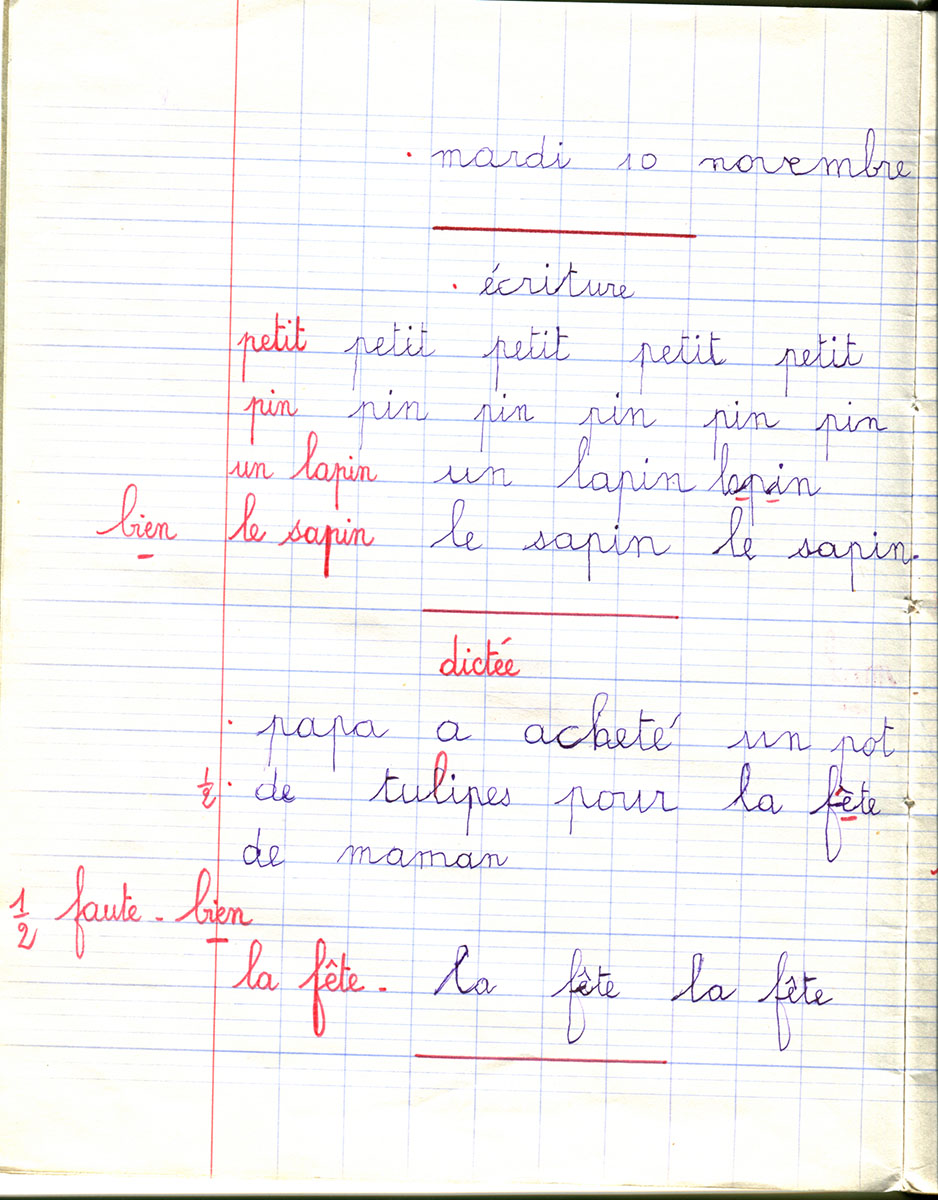 mardi 10 novembre
écriture
petit petit petit petit petit
pin pin pin pin pin pin
un lapin un lapin lapin
bien le sapin le sapin le sapin.
dictée
papa a acheté un pot
1/2 de tulipes pour la fête
de maman
1/2 faute - bien
la fête - la fête la fête